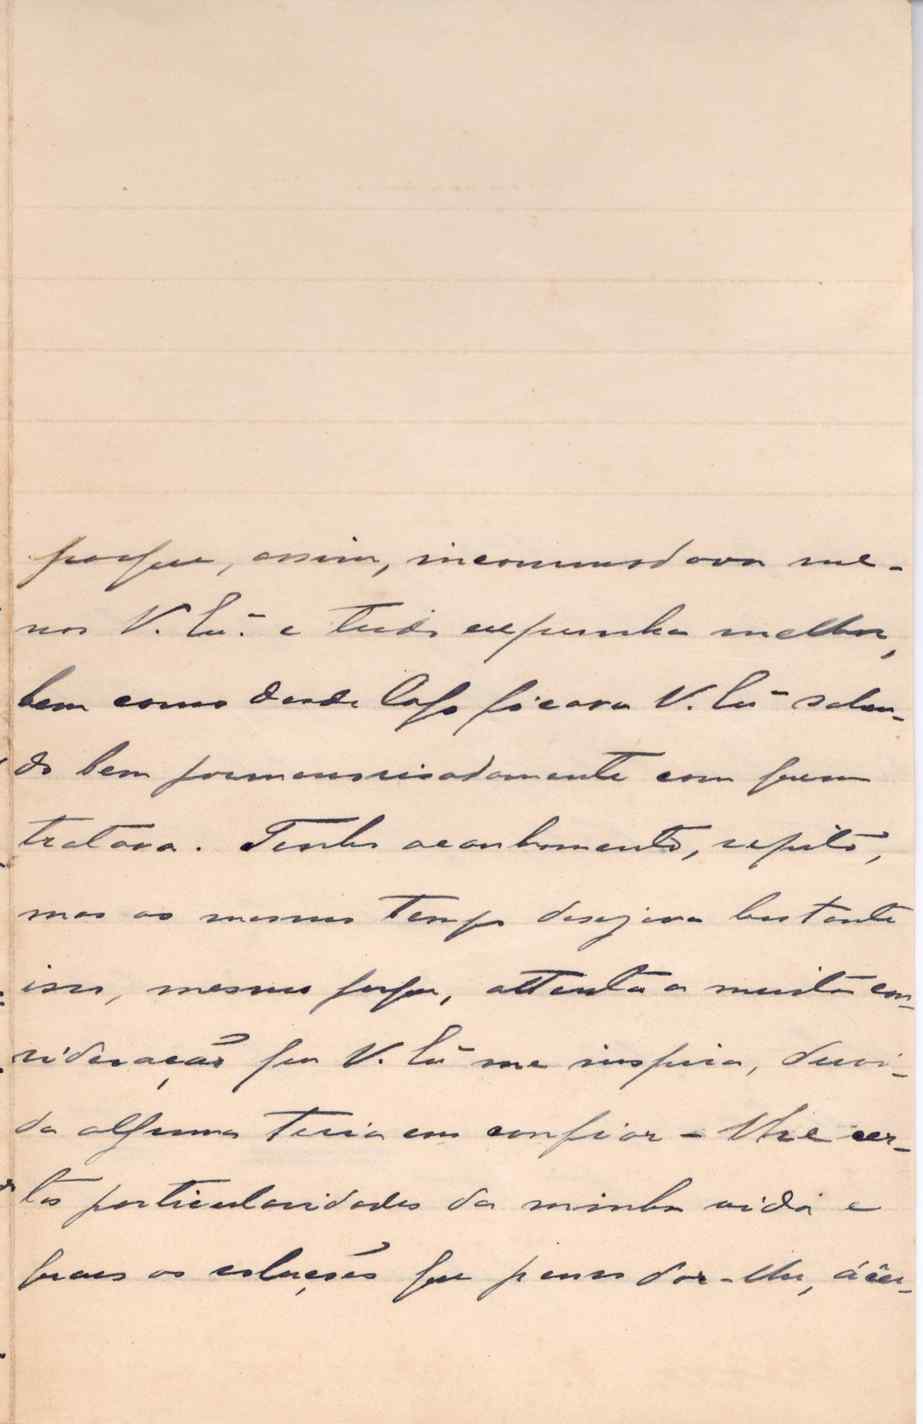 porque, assim, incommodava me-
nos V. Exª. e tudo expunha melhor,
bem como desde logo ficava V. Exª saben-
do bem pormenorisadamente com quem
tratava. Tenho acanhamento, repito,
mas ao mesmo tempo desejava bastante
isso, mesmo porque, attenta a muita con-
sideração que V. Exª me inspira, duvi-
da alguma teria em confiar-lhe cer-
tas particularidades da minha vida e
quaes as soluções que penso dar-lhe,